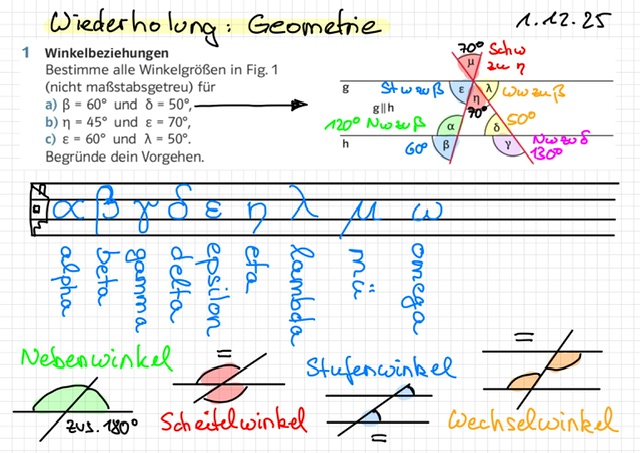 Wiederholung: Geometrie 1.12.25
1 Winkelbeziehungen
Bestimme alle Winkelgrößen in Fig. 1
(nicht maßstabsgetreu) für
a) β = 60° und δ = 50°,
b) η = 45° und ε = 70°,
c) ε = 60° und λ = 50°.
Begründe dein Vorgehen.
70° Schw
μ zu η
g Stw zu β ε λ Ww zu β
η
g∥h 70°
120° Nw zu β α δ 50°
h 60° β γ Nw zu δ
130°
α β γ δ ε η λ μ ω
alpha beta gamma delta epsilon eta lambda mü omega
Nebenwinkel
zus. 180°
=
Scheitelwinkel
Stufenwinkel
=
=
Wechselwinkel